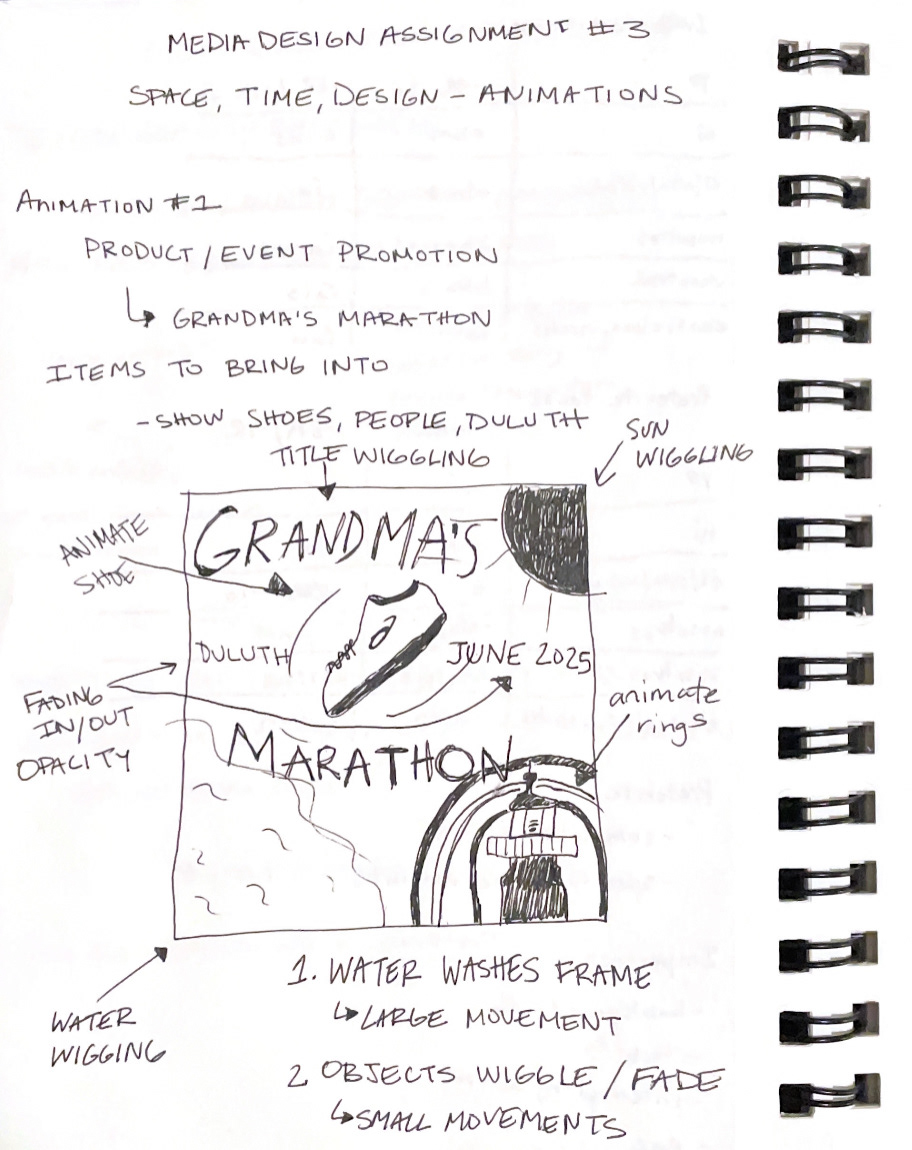 MEDIA DESIGN ASSIGNMENT #3
SPACE, TIME, DESIGN - ANIMATIONS
ANIMATION #1
PRODUCT/EVENT PROMOTION
↳ GRANDMA'S MARATHON
ITEMS TO BRING INTO
- SHOW SHOES, PEOPLE, DULUTH
TITLE WIGGLING
SUN
WIGGLING
ANIMATE
SHOE
GRANDMA'S
DULUTH
JUNE 2025
FADING
IN/OUT
OPACITY
animate
rings
MARATHON
WATER
WIGGING
1. WATER WASHES FRAME
↳ LARGE MOVEMENT
2. OBJECTS WIGGLE / FADE
↳ SMALL MOVEMENTS